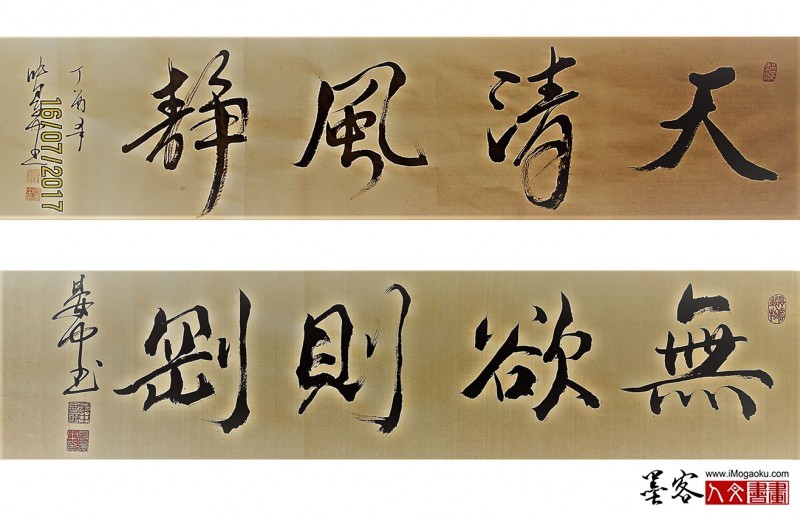 天清風靜
丁酉年
16/07/2017
無欲則剛
晏中书
墨客
www.iMogaoku.com
人文書畫